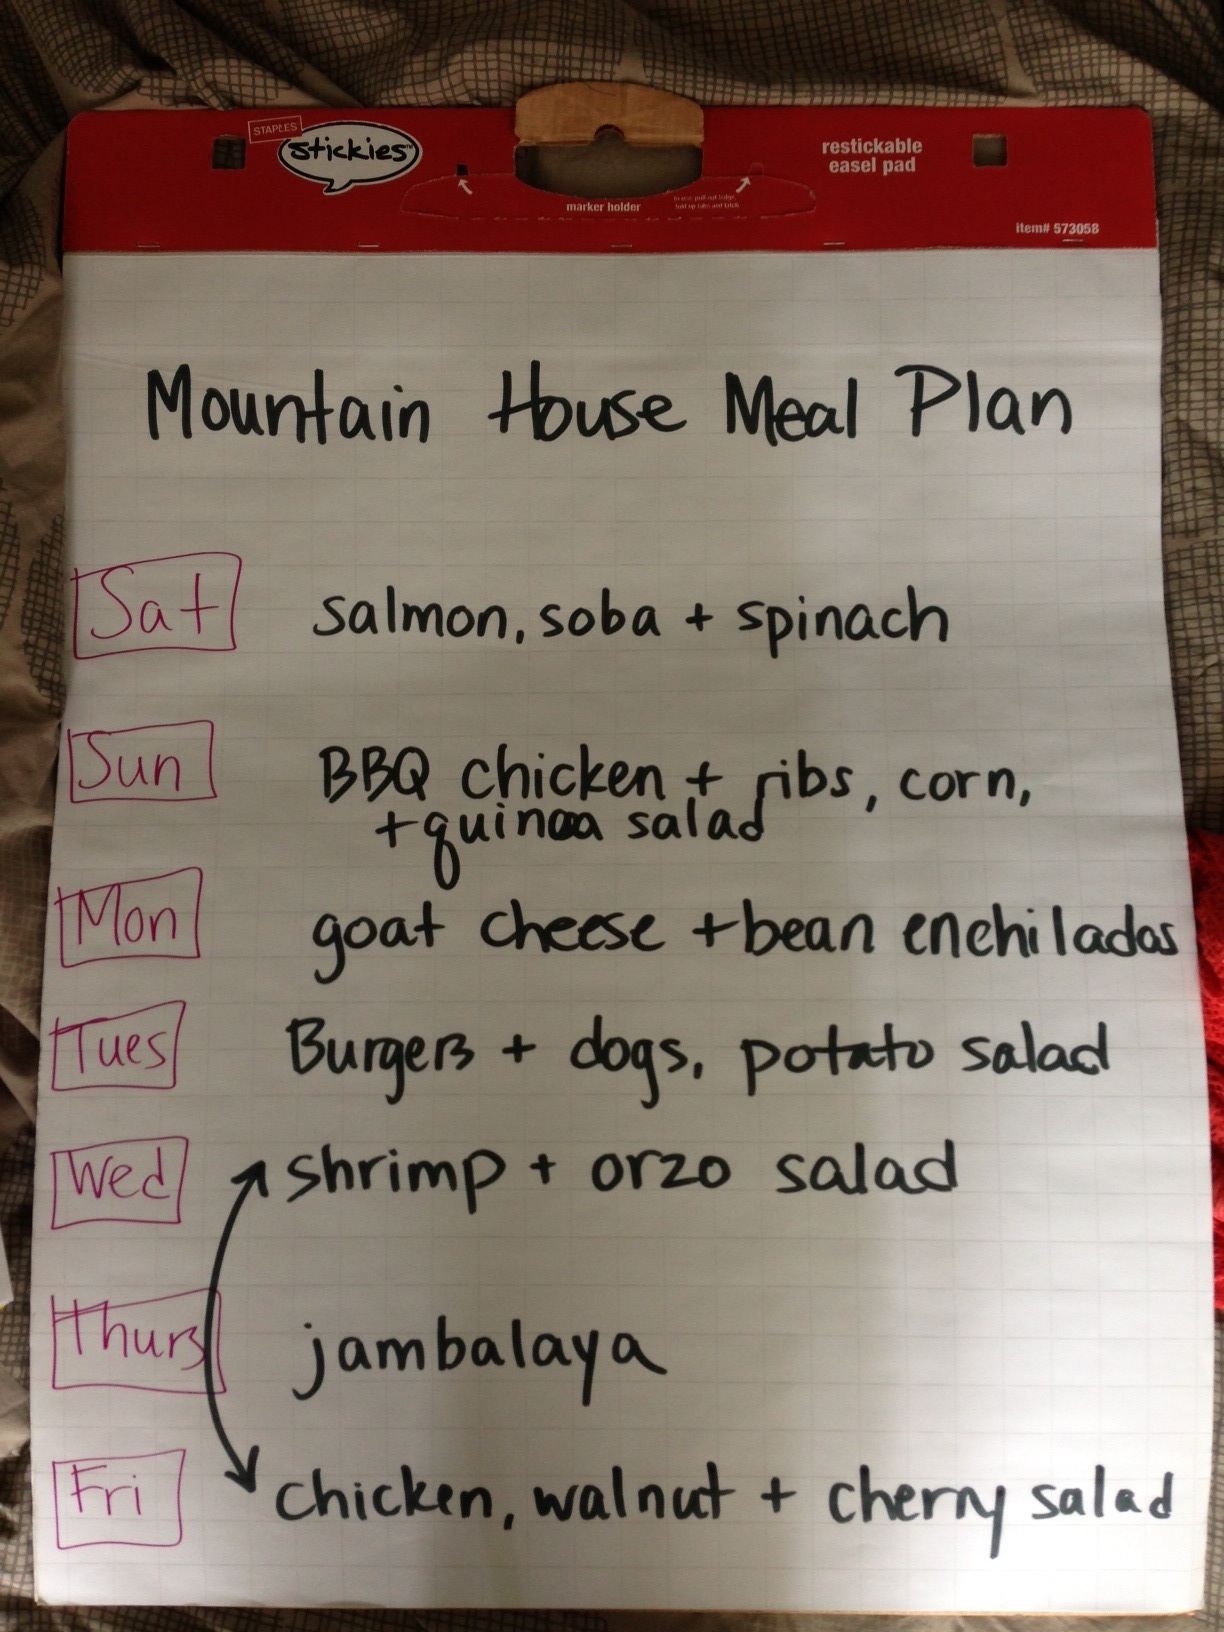 STAPLES
stickies™
restickable
easel pad
marker holder
item# 573058
Mountain House Meal Plan
Sat salmon, soba + spinach
Sun BBQ chicken + ribs, corn,
+ quinoa salad
Mon goat cheese + bean enchiladas
Tues Burgers + dogs, potato salad
Wed shrimp + orzo salad
Thurs jambalaya
Fri chicken, walnut + cherry salad